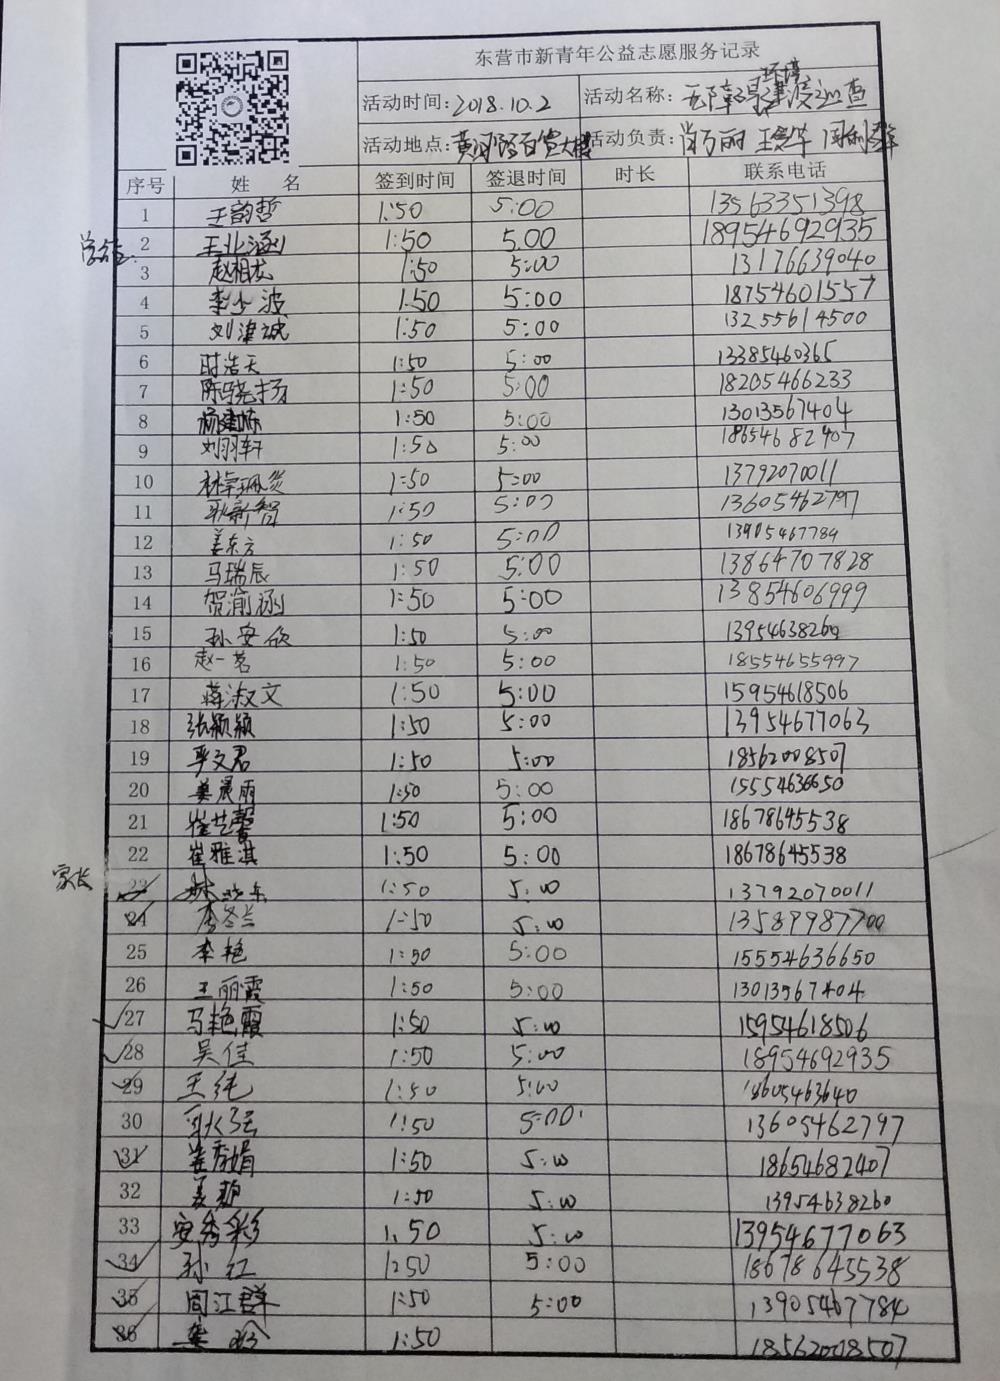 东营市新青年公益志愿服务记录
活动时间: 2018.10.2 活动名称: 无障碍环境建设巡查
活动地点: 黄河路百货大楼 活动负责:
序号 姓 名 签到时间 签退时间 时长 联系电话
1 王韵哲 1:50 5:00 13563351398
学生:
2 王北涵 1:50 5.00 18954692935
3 赵相龙 1:50 5:00 13176639040
4 李少波 1:50 5:00 18754601557
5 刘津诚 1:50 5:00 13255614500
6 时浩天 1:50 5:00 13385460365
7 陈骁扬 1:50 5:00 18205466233
8 杨建栋 1:50 5:00 13013567404
9 刘羽轩 1:50 5:00 18654682407
10 1:50 5:00 13792070011
11 耿新智 1:50 5:00 13605462797
12 姜东方 1:50 5:00 13905467784
13 马瑞辰 1:50 5:00 13864707828
14 贺渝涵 1:50 5:00 13854606999
15 孙安欣 1:50 5:00 13954638260
16 赵一茗 1:50 5:00 18554655997
17 蒋淑文 1:50 5:00 15954618506
18 张颖颖 1:50 5:00 13954677063
19 严文君 1:50 5:00 18562008507
20 姜晨雨 1:50 5:00 15554636650
21 崔艺馨 1:50 5:00 18678645538
22 崔雅淇 1:50 5:00 18678645538
家长
23 林晓东 1:50 5:00 13792070011
24 李冬兰 1:50 5:00 13589987700
25 李艳 1:50 5:00 15554636650
26 王丽霞 1:50 5:00 13013567404
27 马艳霞 1:50 5:00 15954618506
28 吴佳 1:50 5:00 18954692935
29 王纯 1:50 5:00 18605463640
30 耿弘 1:50 5:00 13605462797
31 姜秀娟 1:50 5:00 18654682407
32 1:50 5:00 13954638260
33 安秀彩 1:50 5:00 13954677063
34 孙红 1:50 5:00 18678645538
35 周江群 1:50 5:00 13905467784
36 1:50 18562008507